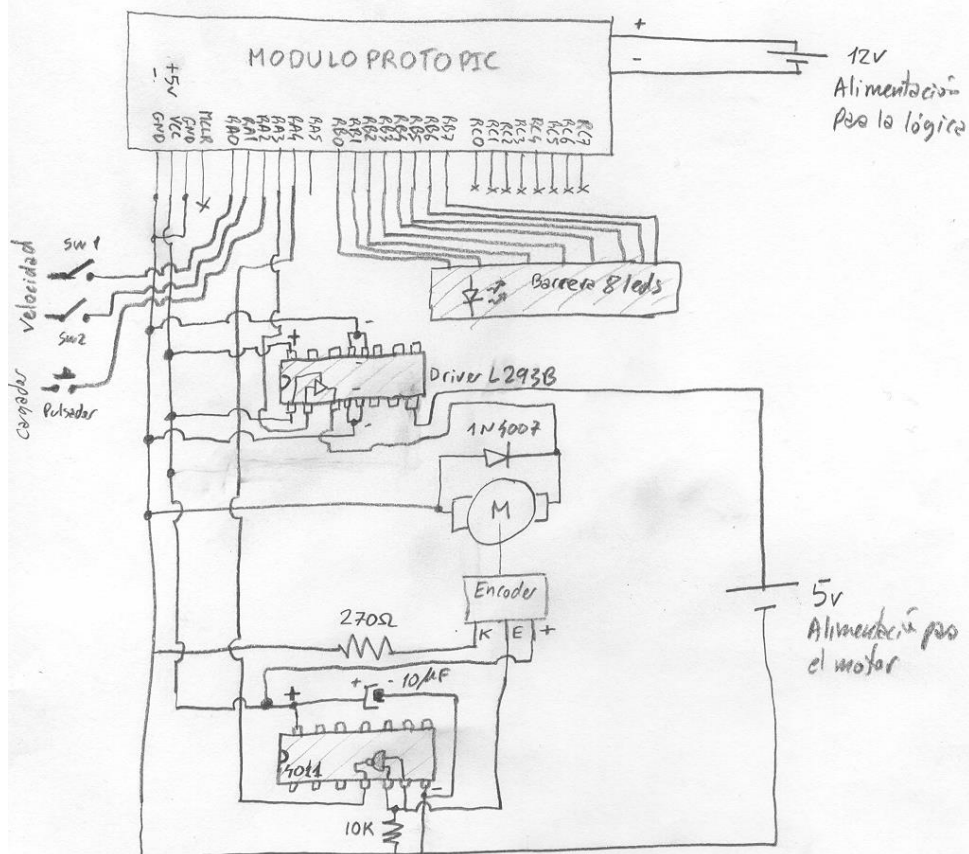 MODULO PROTOPIC
+
-
12V
Alimentación
Para la lógica
-
+5V
GND
VCC
GND
MCLR
RA0
RA1
RA2
RA3
RA4
RA5
RB0
RB1
RB2
RB3
RB4
RB5
RB6
RB7
RC0
RC1
RC2
RC3
RC4
RC5
RC6
RC7
Velocidad
SW1
SW2
Cargador
Pulsador
Barrera 8 leds
+
-
-
-
-
Driver L293B
1N4007
M
Encoder
K E +
270Ω
5v
Alimentación para
el motor
+
+ - 10µF
4011
-
10K